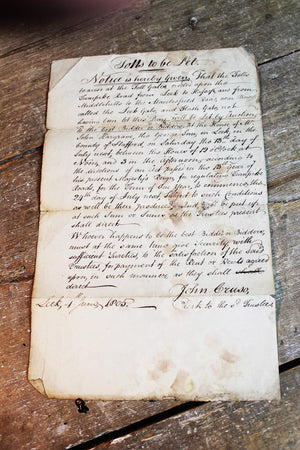 Tolls to be Let.
Notice is hereby Given, That the Tolls
arising at the Toll Gates erected upon the
Turnpike Road from Leek to and from
Middlehills to the Macclesfield Road, near
called the Leek Gate, and Gate, will
be Let by Auction,
to the best Bidder or Bidders, at the House of
John Hargrave, the George Inn, in Leek, in the
County of Stafford, on Saturday the 13th Day of
July next, between the Hours of 12 o'Clock at
Noon, and 3 in the afternoon, according to
the directions of an Act passed in the 13th Year of
his present Majesty's Reign, for regulating Turnpike
Roads, for the Term of One Year, to commence the
24th day of July next, subject to such Conditions
as will be then produced, and to be put up
at such Sum or Sums as the Trustees present
shall direct.
Whoever happens to be the best Bidder or Bidders,
must at the same time give Security with
sufficient Sureties, to the satisfaction of the said
Trustees, for payment of the Rent or Rents agreed
for, in such manner as they shall
direct.
John Cruso,
Leek, 4 June, 1805. Clerk to the sd Trustees